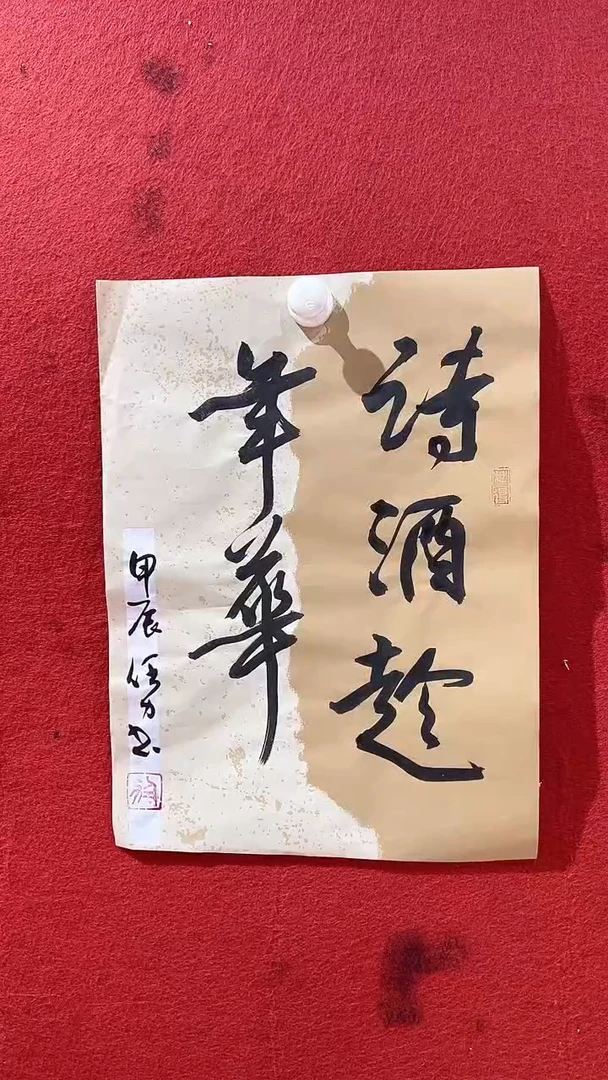 诗酒趁
年華
甲辰任力书